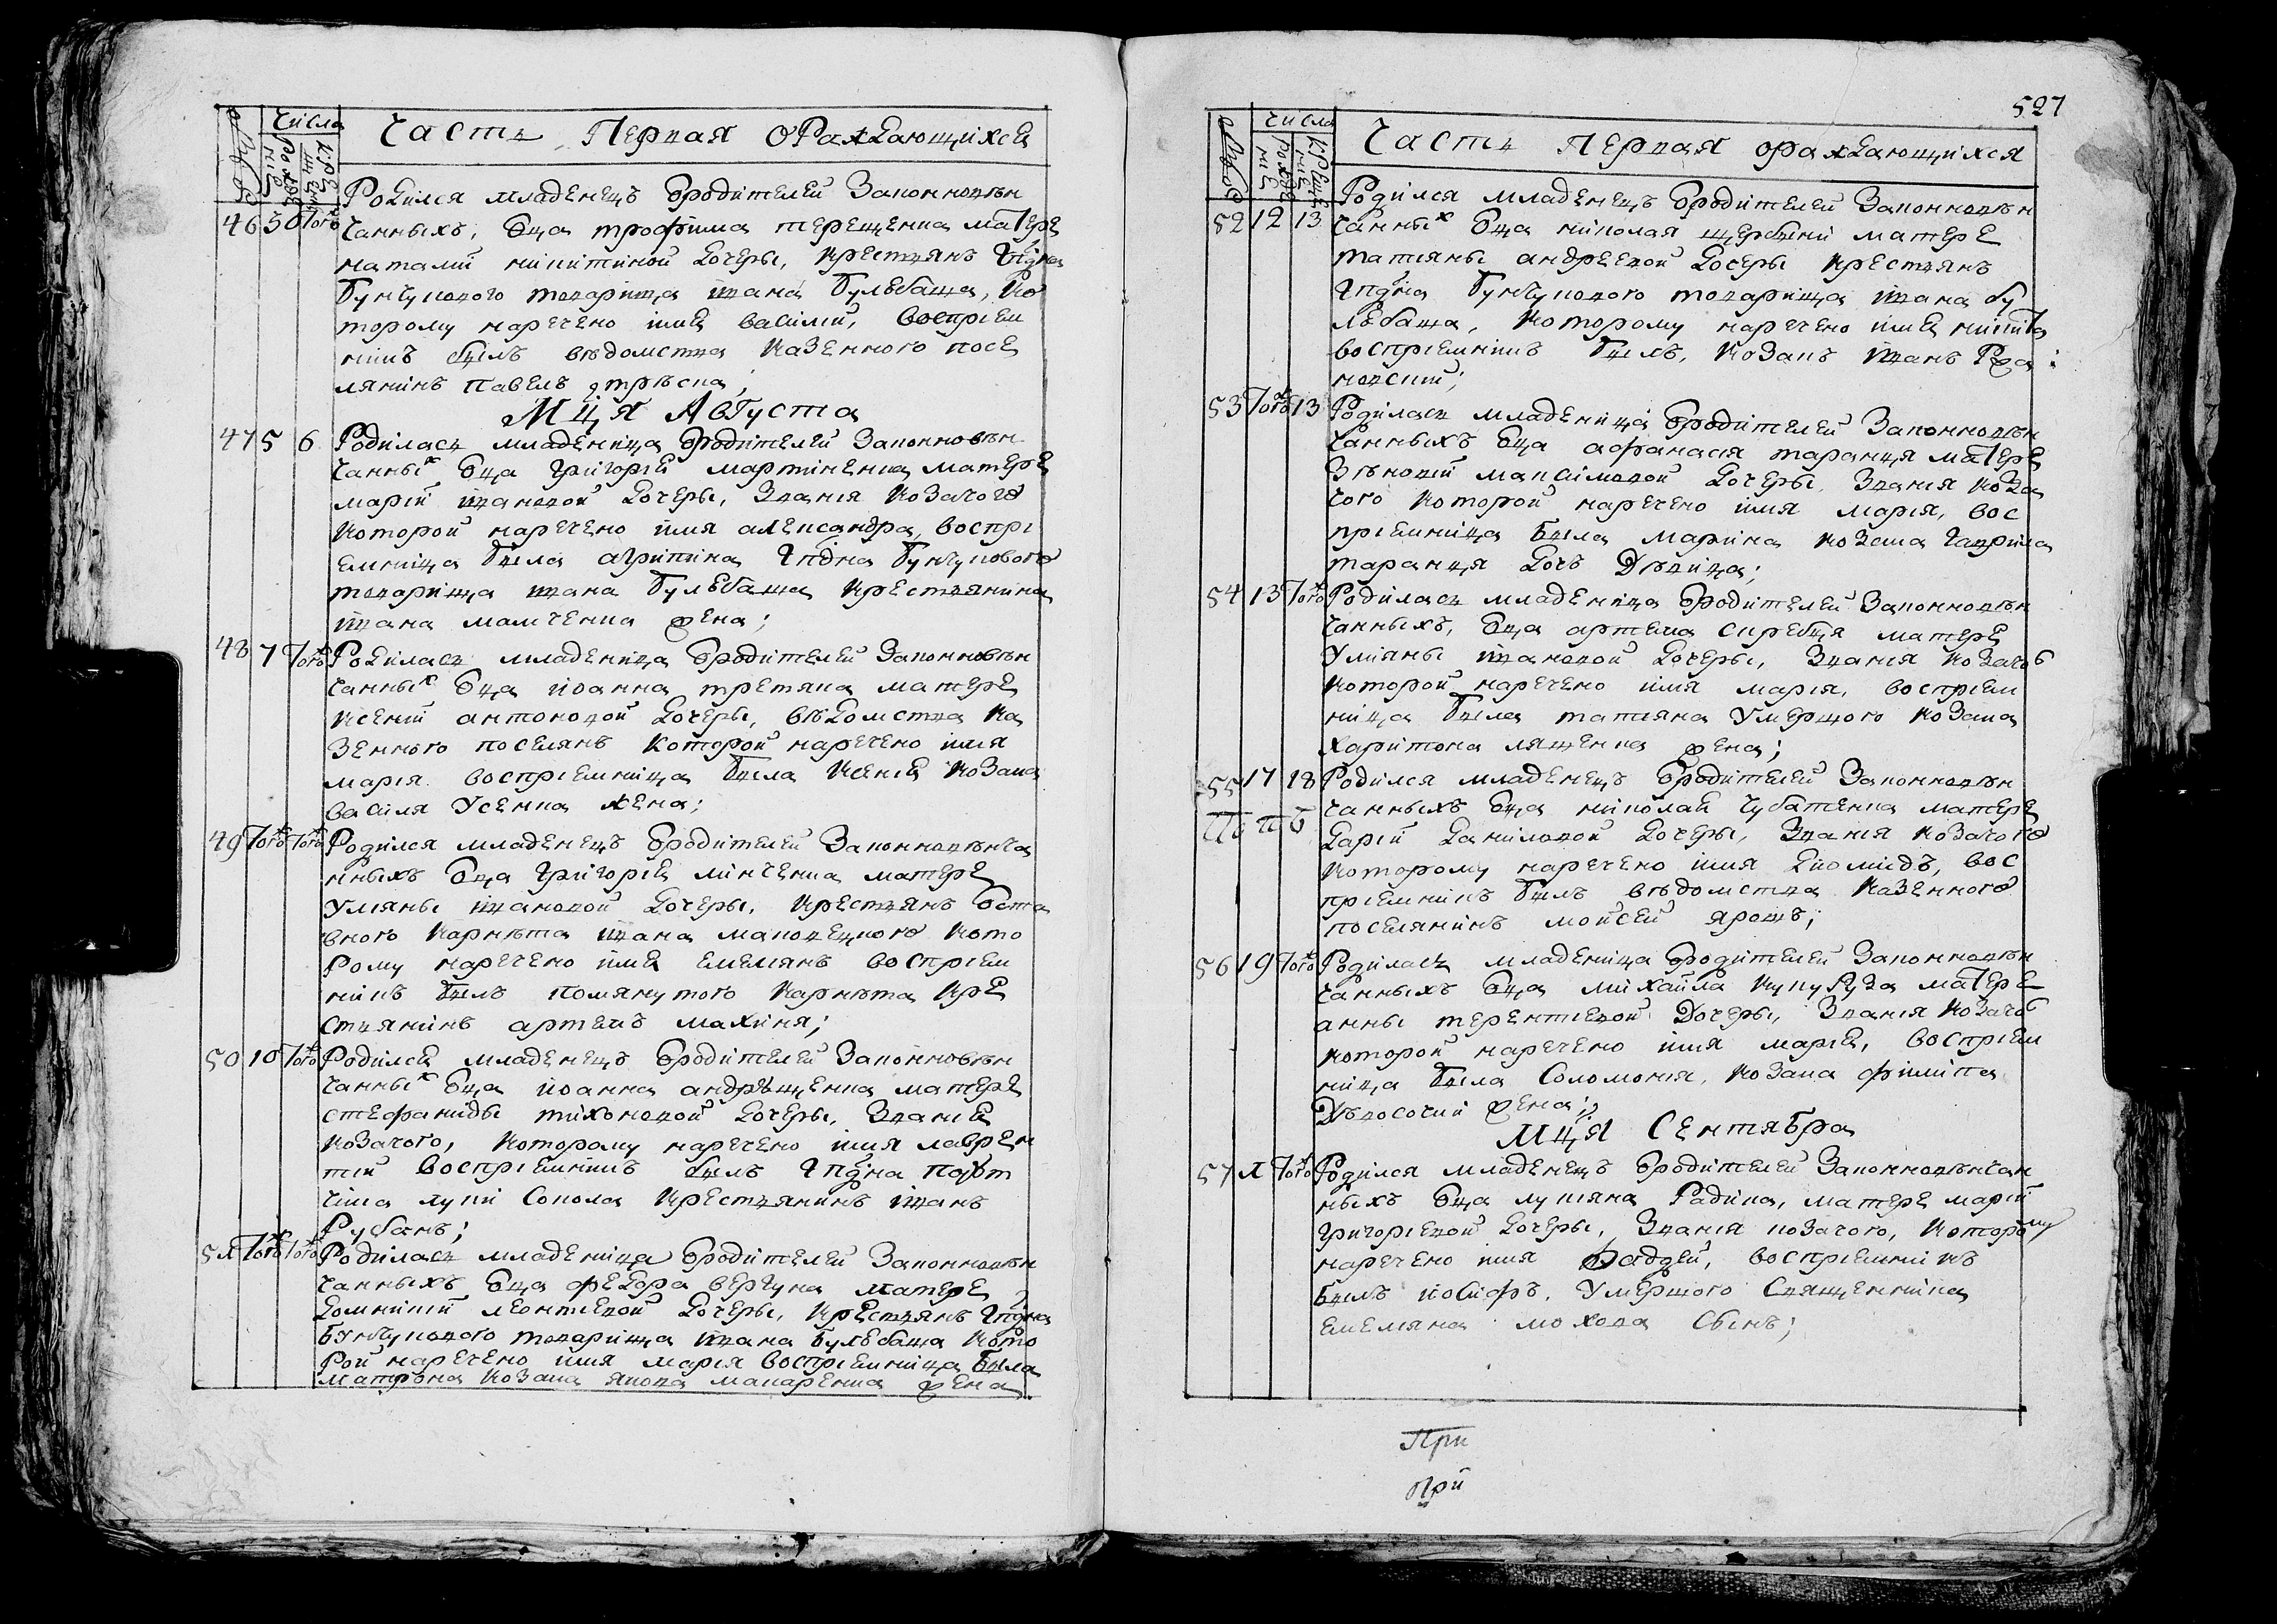 Числа
Часть Первая о Раждающихся
Родился младенецъ Ѿродителей Законновѣн
46 30 Того чанныхъ, Ѿца трофима терещенка матере
наталіи никитиной дочеры, крестьянъ Гпдна
Бунчукового товарища ивана Бульбаша, ко
торому наречено имя василій, восприем
никъ былъ вѣдомства казенного посе
лянинъ павелъ
Мця Августа
47 5 6 Родилась младеница Ѿродителей Законновѣн
чанных Ѿца григорія мартиненка матере
маріи ивановой дочеры, званія козачого
которой наречено имя александра, воспри
емница была агрипина Гпдна Бунчукового
товарища ивана бульбаша крестьянина
ивана мамченка жена;
48 7 Тогож Родилась младеница Ѿродителей Законновѣн
чанных Ѿца иоанна третяка матере
ксеніи антоновой дочеры, вѣдомства ка
зенного поселянъ которой наречено имя
марія восприемница была ксенія козака
василя Усенка жена;
49 Тогож Тогож Родился младенецъ Ѿродителей Законновѣнча
нныхъ Ѿца григорія минченка матере
уліяны ивановой дочеры, крестьянъ Ѿста
вного карнѣта ивана маковецкого кото
рому наречено имя емеліянъ восприем
никъ былъ помянутого карнѣта кре
стьянинъ артемъ махиня;
50 10 Тогож Родился младенецъ Ѿродителей Законновѣн
чанных Ѿца иоанна андрѣщенка матере
стефаниды тихоновой дочеры, званія
козачого, которому наречено имя лаврен
тій восприемникъ былъ Гпдна порт
чика луки Сокола крестьянинъ иванъ
Рубанъ;
51 Тогож Тогож Родилась младеница Ѿродителей Законновѣн
чанныхъ Ѿца федора вергуна матере
домникіи леонтіевой дочеры, крестьянъ Гпдна
Бунчукового товарища ивана Бульбаша кото
рой наречено имя марія восприемница была
матрона козака якова макаренка жена
527
Числа
Часть Первая о раждающихся
Родился младенецъ Ѿродителей Законновѣн
52 12 13 чанных Ѿца николая щербини матере
татіяны андреевой дочеры крестьянъ
Гпдна Бунчукового товарища ивана бу
льбаша, которому наречено имя никита
восприемникъ былъ, козакъ иванъ Ржа
новскій;
53 Тогож 13 Родилась младеница Ѿродителей Законновѣн
чанныхъ Ѿца афанасія таранця матере
Зѣновіи максимовой дочеры званія коза
чого которой наречено имя марія, вос
приемница была марина козака гаврила
таранця дочь Дѣвица;
54 13 Тогож Родилась младеница Ѿродителей Законновѣн
чанныхъ, Ѿца артема скребця матере
Уліяны ивановой дочеры, званія козачо
которой наречено имя марія, восприем
ница была татіяна умершого козака
харитона лященка жена;
55 17 18 Родился младенецъ Ѿродителей Законновѣн
чанныхъ Ѿца николая чубатенка матере
даріи даниловой дочеры, званія козачого
которому наречено имя диомидъ, вос
приемникъ былъ вѣдомства казенного
поселянинъ мойсей ярошъ;
56 19 Тогож Родилась младеница Ѿродителей Законновѣн
чанныхъ Ѿца михайла кукурузы матере
анны терентіевой Дочеры, званія козачо
которой наречено имя марія, восприем
ница была Соломонія, козака филипа
жена;
Мця Сентября
57 1 Тогож Родился младенецъ Ѿродителей Законновѣнчан
ныхъ Ѿца лукіяна Радика, матере маріи
григоріевой дочеры, званія козачого, которому
наречено имя Фаддей, восприемникъ
былъ иосифъ, умершого Священника
емеліяна мохова Сынъ;
При
При